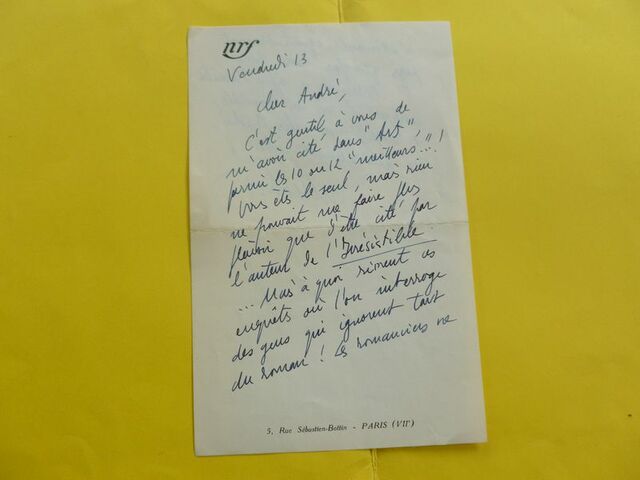 nrf
Vendredi 13
Cher André,
C'est gentil à vous de
m'avoir cité, dans "Arts",
parmi les 10 ou 12 "meilleurs"...!
Vous êtes le seul, mais rien
ne pouvait me faire plus
plaisir que d'être cité par
l'auteur de l'Irrésistible
... Mais à quoi riment ces
enquêtes où l'on interroge
des gens qui ignorent tout
du roman ! Les romanciers ne
5, Rue Sébastien-Bottin - PARIS (VIIe)